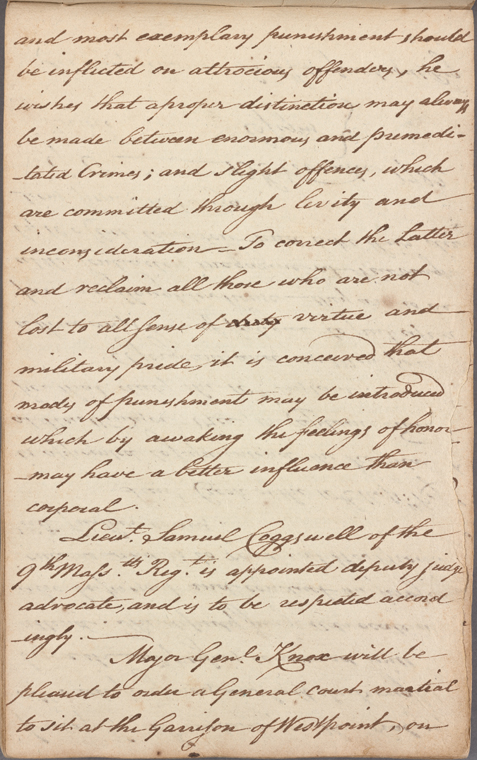 and most exemplary punishment should
be inflicted on attrocious offenders, he
wishes that a proper distinction may always
be made between enormous and premedi-
-tated Crimes; and slight offences, which
are committed through levity and
inconsideration — To correct the Latter
and reclaim all those who are not
lost to all sense of duty virtue and
military pride, it is conceived that
modes of punishment may be introduced
which by awaking the feelings of honor
may have a better influence than
corporal.
Lieut. Samuel Coggswell of the
9th Mass.tts Reg.t is appointed deputy judge
advocate, and is to be respected accord
-ingly. —
Major Genl. Knox will be
pleased to order a General court martial
to sit at the Garrison of Westpoint, on